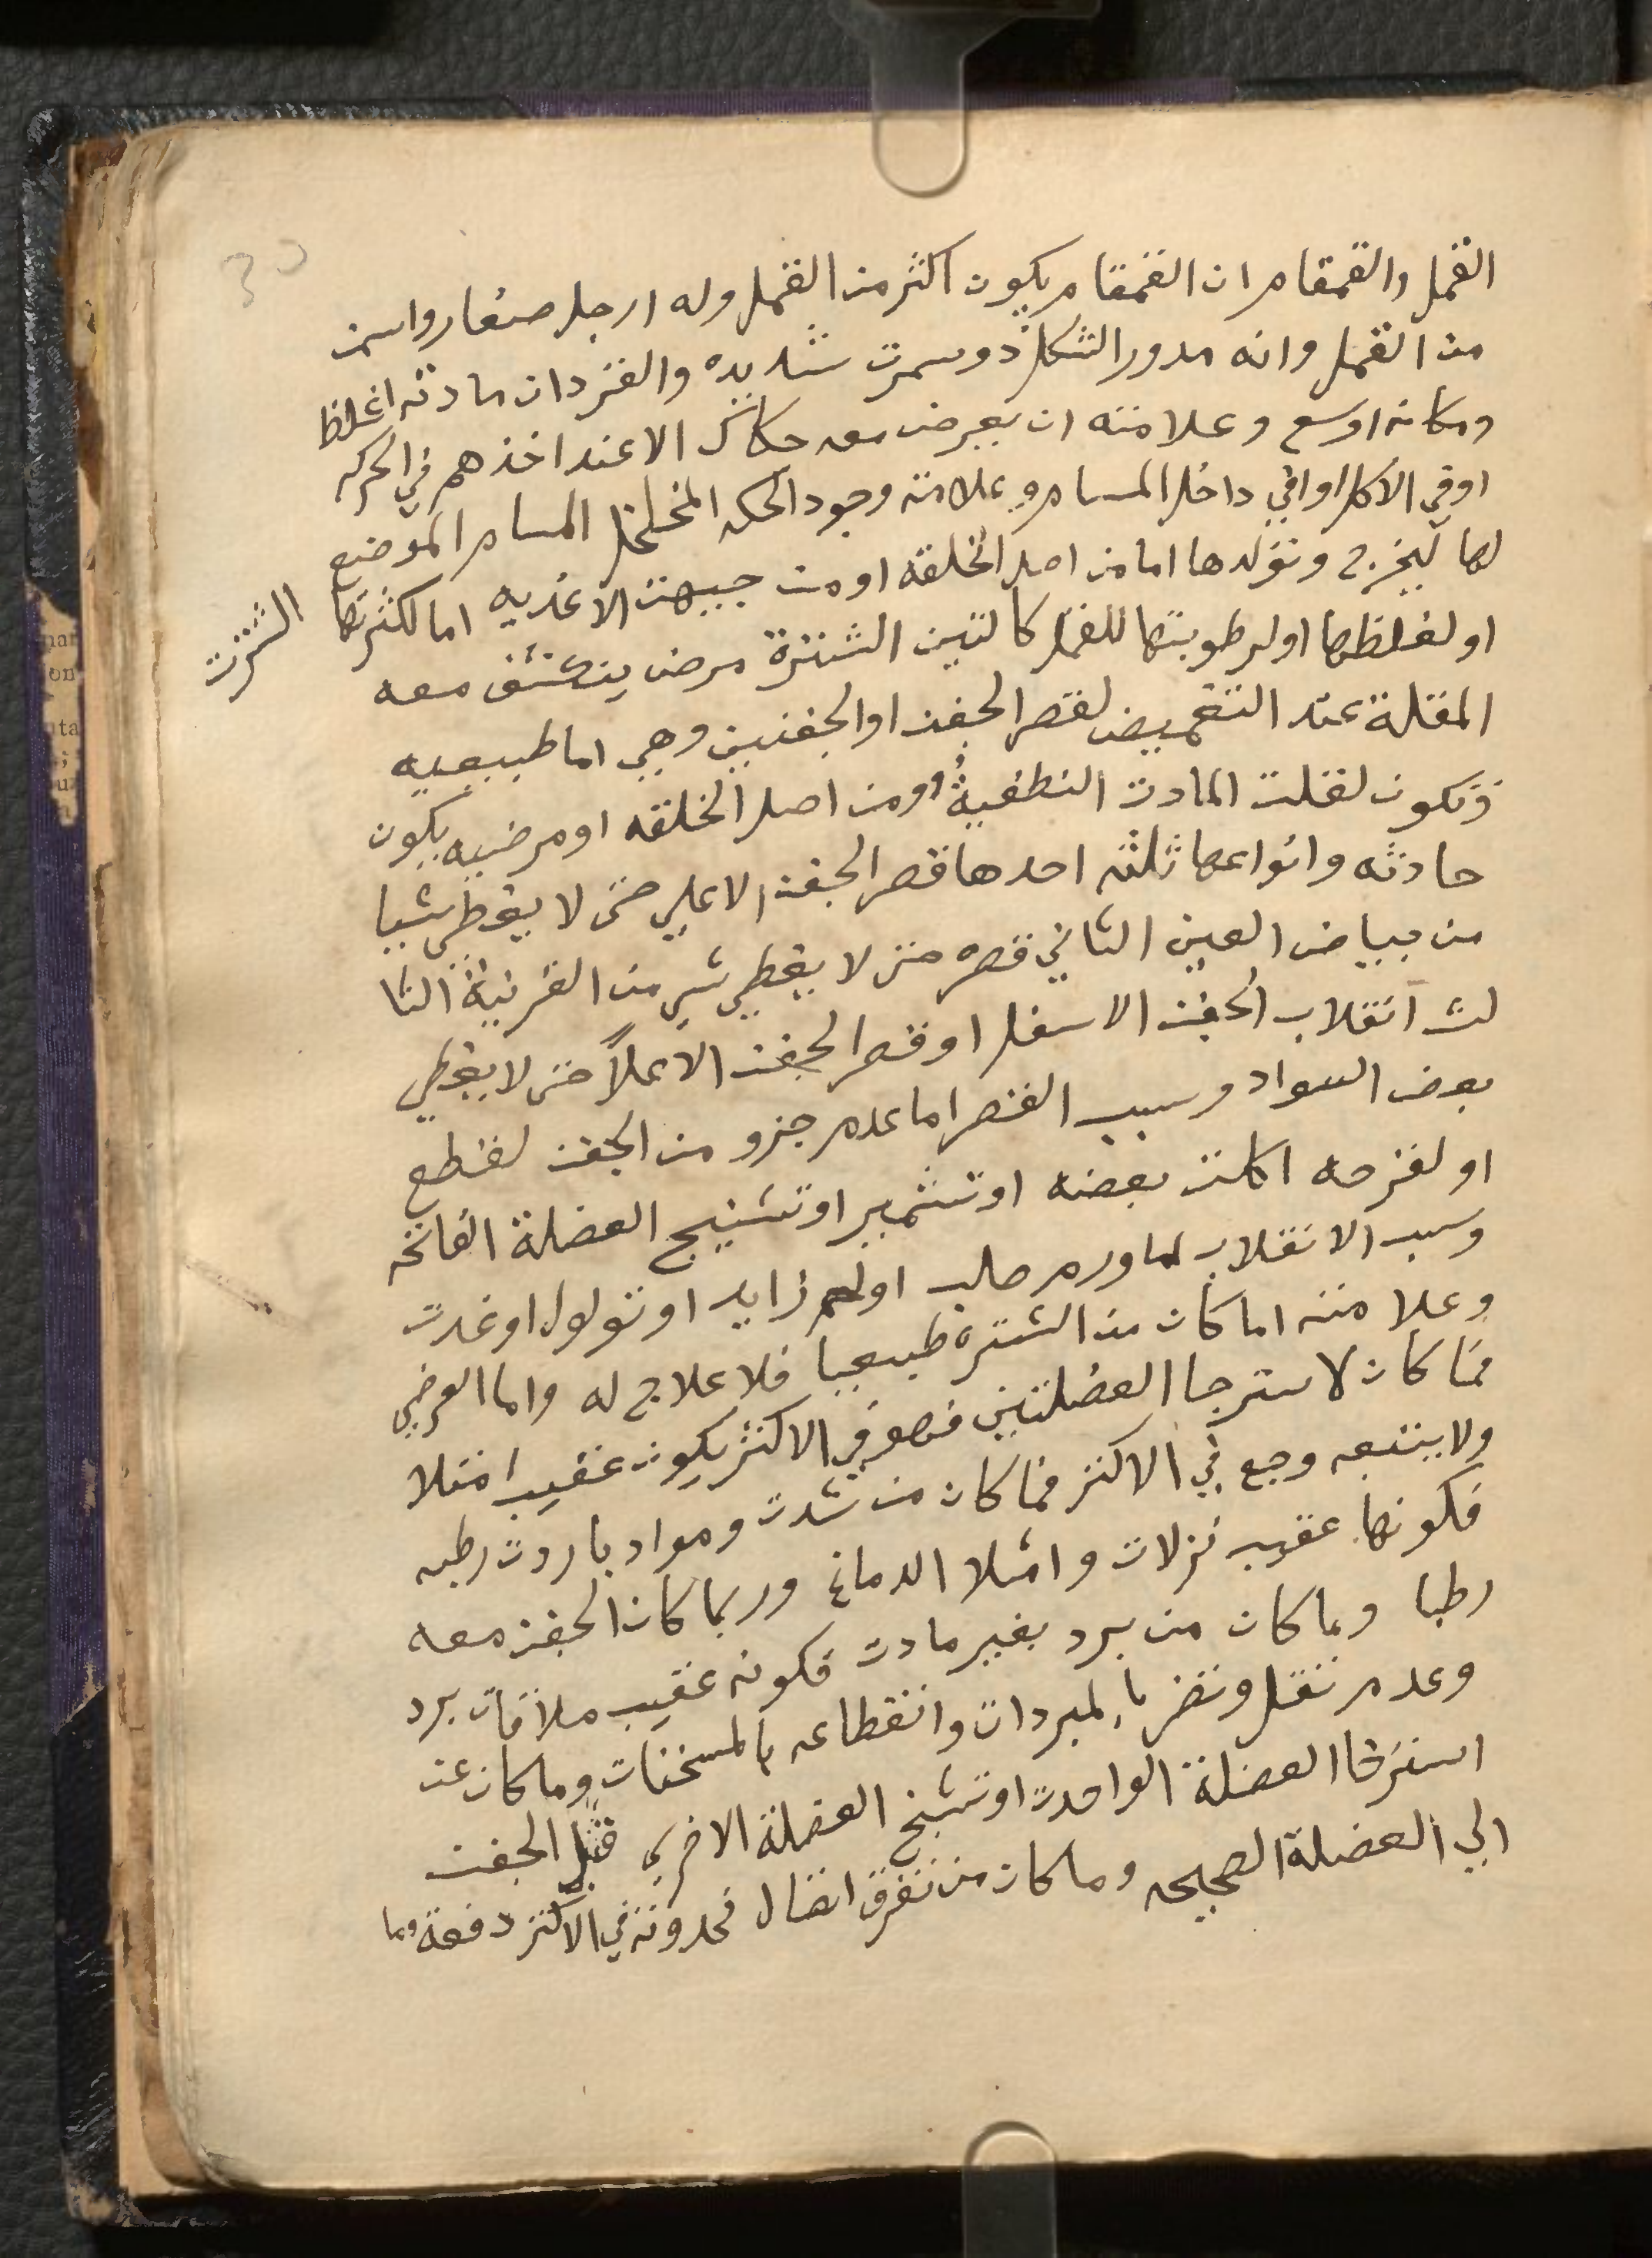 القمل والقمقام ان القمقام يكون اكثر من القمل وله ارجل صغار واسمن
من القمل وانه مدور الشكل ذو سمرت شديده والقردان مادته اغلظ
ومكانه اوسع وعلامته ان يعرض معه حكاك الا عند اخذهم في الحركه
او في الاكل او في داخل المسام وعلامته وجود الحكه المخلخل المسام الموضع
لها ليخرج وتولدها اما من اصل الخلقه او من جيهت الاغديه اما لكثرتها
الشترت
او لغلظها او لرطوبتها للقمل كالتين الشترة مرض ينكشف معه
المقلة عند التغميض لقصر الجفن او الجفنين وهي اما طبيعيه
فتكون لقلت المادت النطفية او من اصل الخلقه او مرضيه يكون
حادثه وانواعها ثلثه احدها قصر الجفن الاعلي حتى لا يغطي شيا
من بياض العين الثاني قصره حتى لا يغطي شي من القرنية الثا
لث انقلاب الجفن الاسفل او قصر الجفن الاعلاً حتى لا يغطي
بعض السواد وسبب القصر اما عدم جزو من الجفن لقطع
او لقرحه اكلت بعضه او تشمير او تشنيج العضلة الفاتحه
وسبب الانقلاب اما ورم صلب او لحم زايد او ثولول او غدت
وعلامته اما كان من الشتره طبيعيا فلا علاج له واما العرضي
فما كان لاسترخا العضلتين فهو في الاكثر يكون عقيب امتلا
ولا يتبعه وجع في الاكثر فما كان من شدت ومواد باردت رطبه
فكونها عقيب نزلات وامتلا الدماغ وربما كان الجفن معه
رطبا وما كان من برد بغير مادت فكونه عقيب ملاقات برد
وعدم ثقل وتضر بالمبردات وانقطاعه بالمسخنات وما كان عن
استرخا العضلة الواحدت او تشنج العضلة الاخري الجفن
الي العضلة الصحيحه وما كان من تفرق اتصال فحدوثه في الاكثر دفعة وما